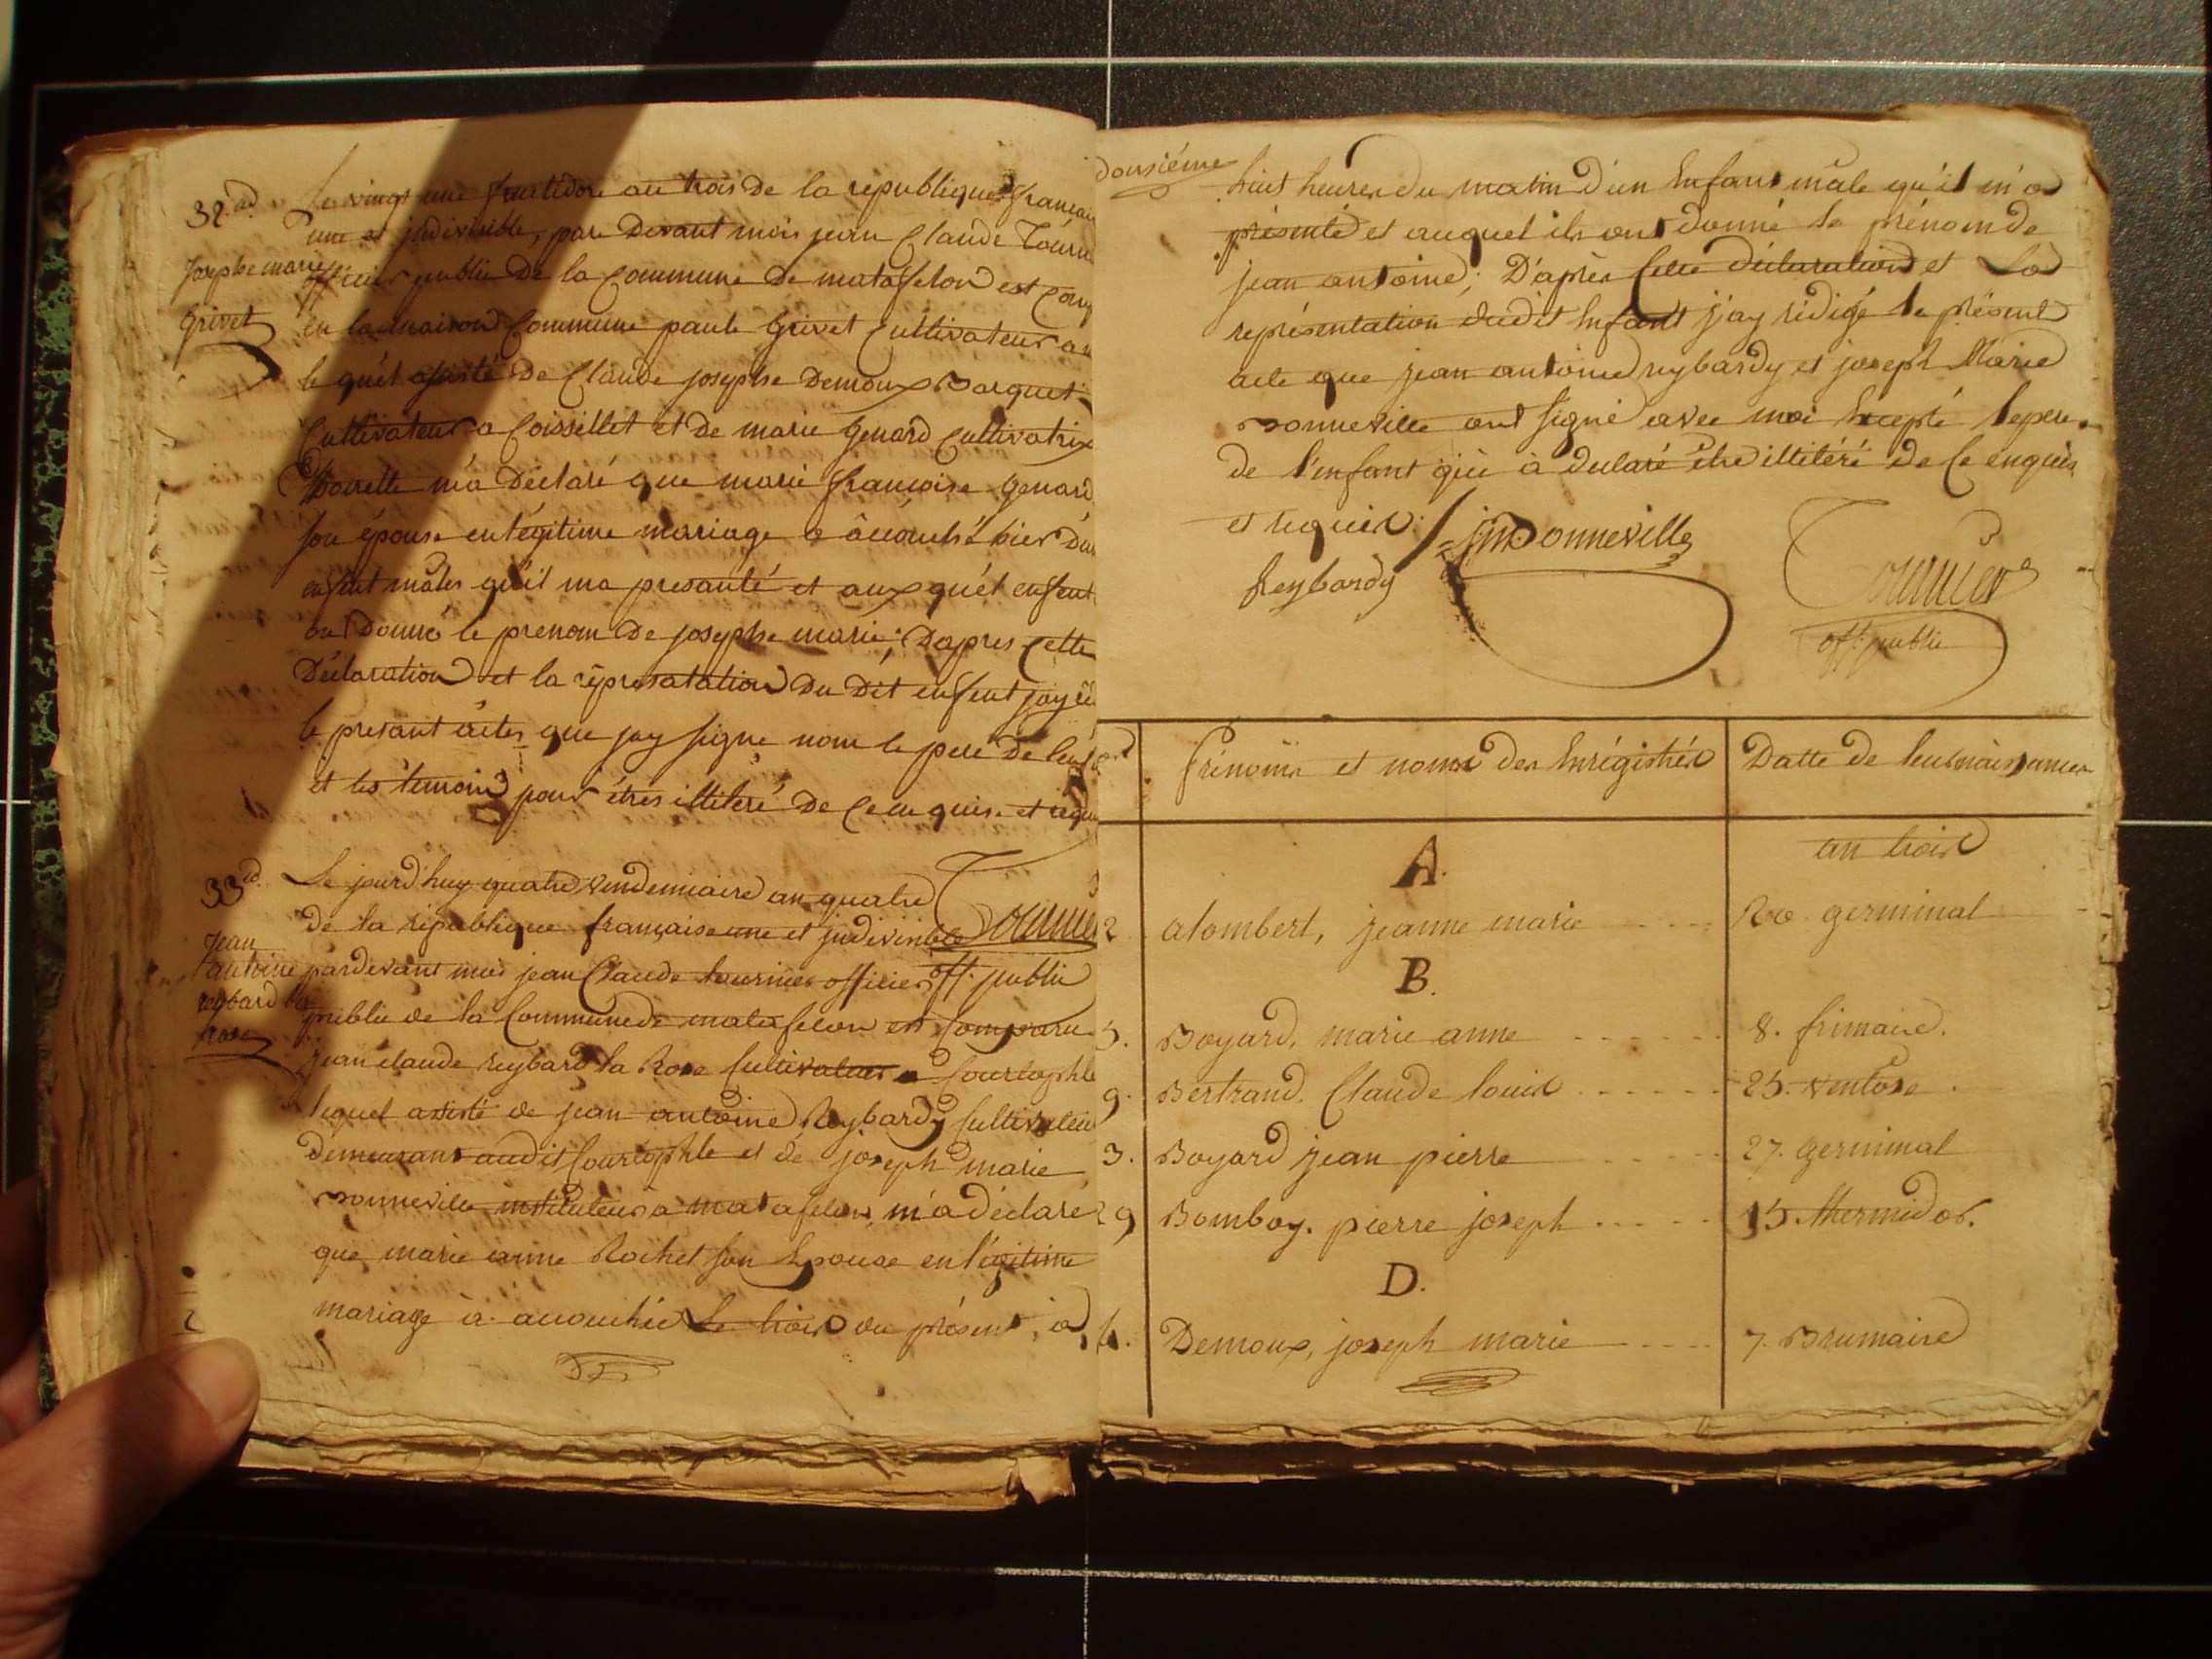 32.
Josephe marie
Grivet
Le vingt une fructidor an trois de la republique francai
une et jndivisible, par Devant mois jean Claude Tourn
officier public De la Commune De matafelon est com
en la maison Commune paule Grivet Cultivateur au
le quél asisté De Claude josephe Demoux
Cultivateur a Coissillet et de marie Genard Cultivatrix
m'a Déclaré que marie françoise Genard
son épouse en légitime mariage a âccouché hier d'un
enfent mâles qu'il ma presanté et aux quél enfent
ont Donné le prenom De josephe marie; Dapres Cette
Déclaration et la represatation Du Dit enfent jay ré
le presant actes que jay signe nom le pere De lenf
et les temoin pour étres illiteré De Ce enquis. et requ
33
Jean
antoine
reybard la
Rose
Le jourd'huy quatre vendemiaire an quatre
de la république française une et jndivisible
pardevant moi jean Claude tournier officier
public de la Commune de matafelon est Comparu
jean claude reybard la Rose Cultivateur a Courtophle
lequel assisté de jean antoine Reybardy Cultivateur
demeurant audit Courtophle et de joseph marie
Bonneville instituteur à matafelon, m'a déclaré
que marie anne Rochet son Epouse en légitime
mariage à accouchée Le trois du présent, à
Tournier
off. public
Dousiéme
huit heures du matin d'un Enfant mâle qu'il m'a
présenté et auquel ils ont donné le prénom de
jean antoine; D'après Cette déclaration et La
représentation dudit Enfant j'ay rédigé le présent
acte que jean antoine reybardy et joseph Marie
Bonneville ont signé avec moi Excepté le pere
de l'enfant qui à declaré être illitéré de Ce enquis
et requis.
jmBonneville
Reybardy
Tournier
off. public
Prénoms et noms des Enrégistrés Datte de leurs naissances
an trois
A.
2 alombert, jeanne marie 20 germinal
B.
5. Boyard, marie anne 8. frimaire.
9. Bertrand. Claude louis 25. ventôse.
3. Boyard jean pierre 27. germinal
29 Bomboy. pierre joseph 15. thermidor.
D.
Demoux, joseph marie 7. Brumaire